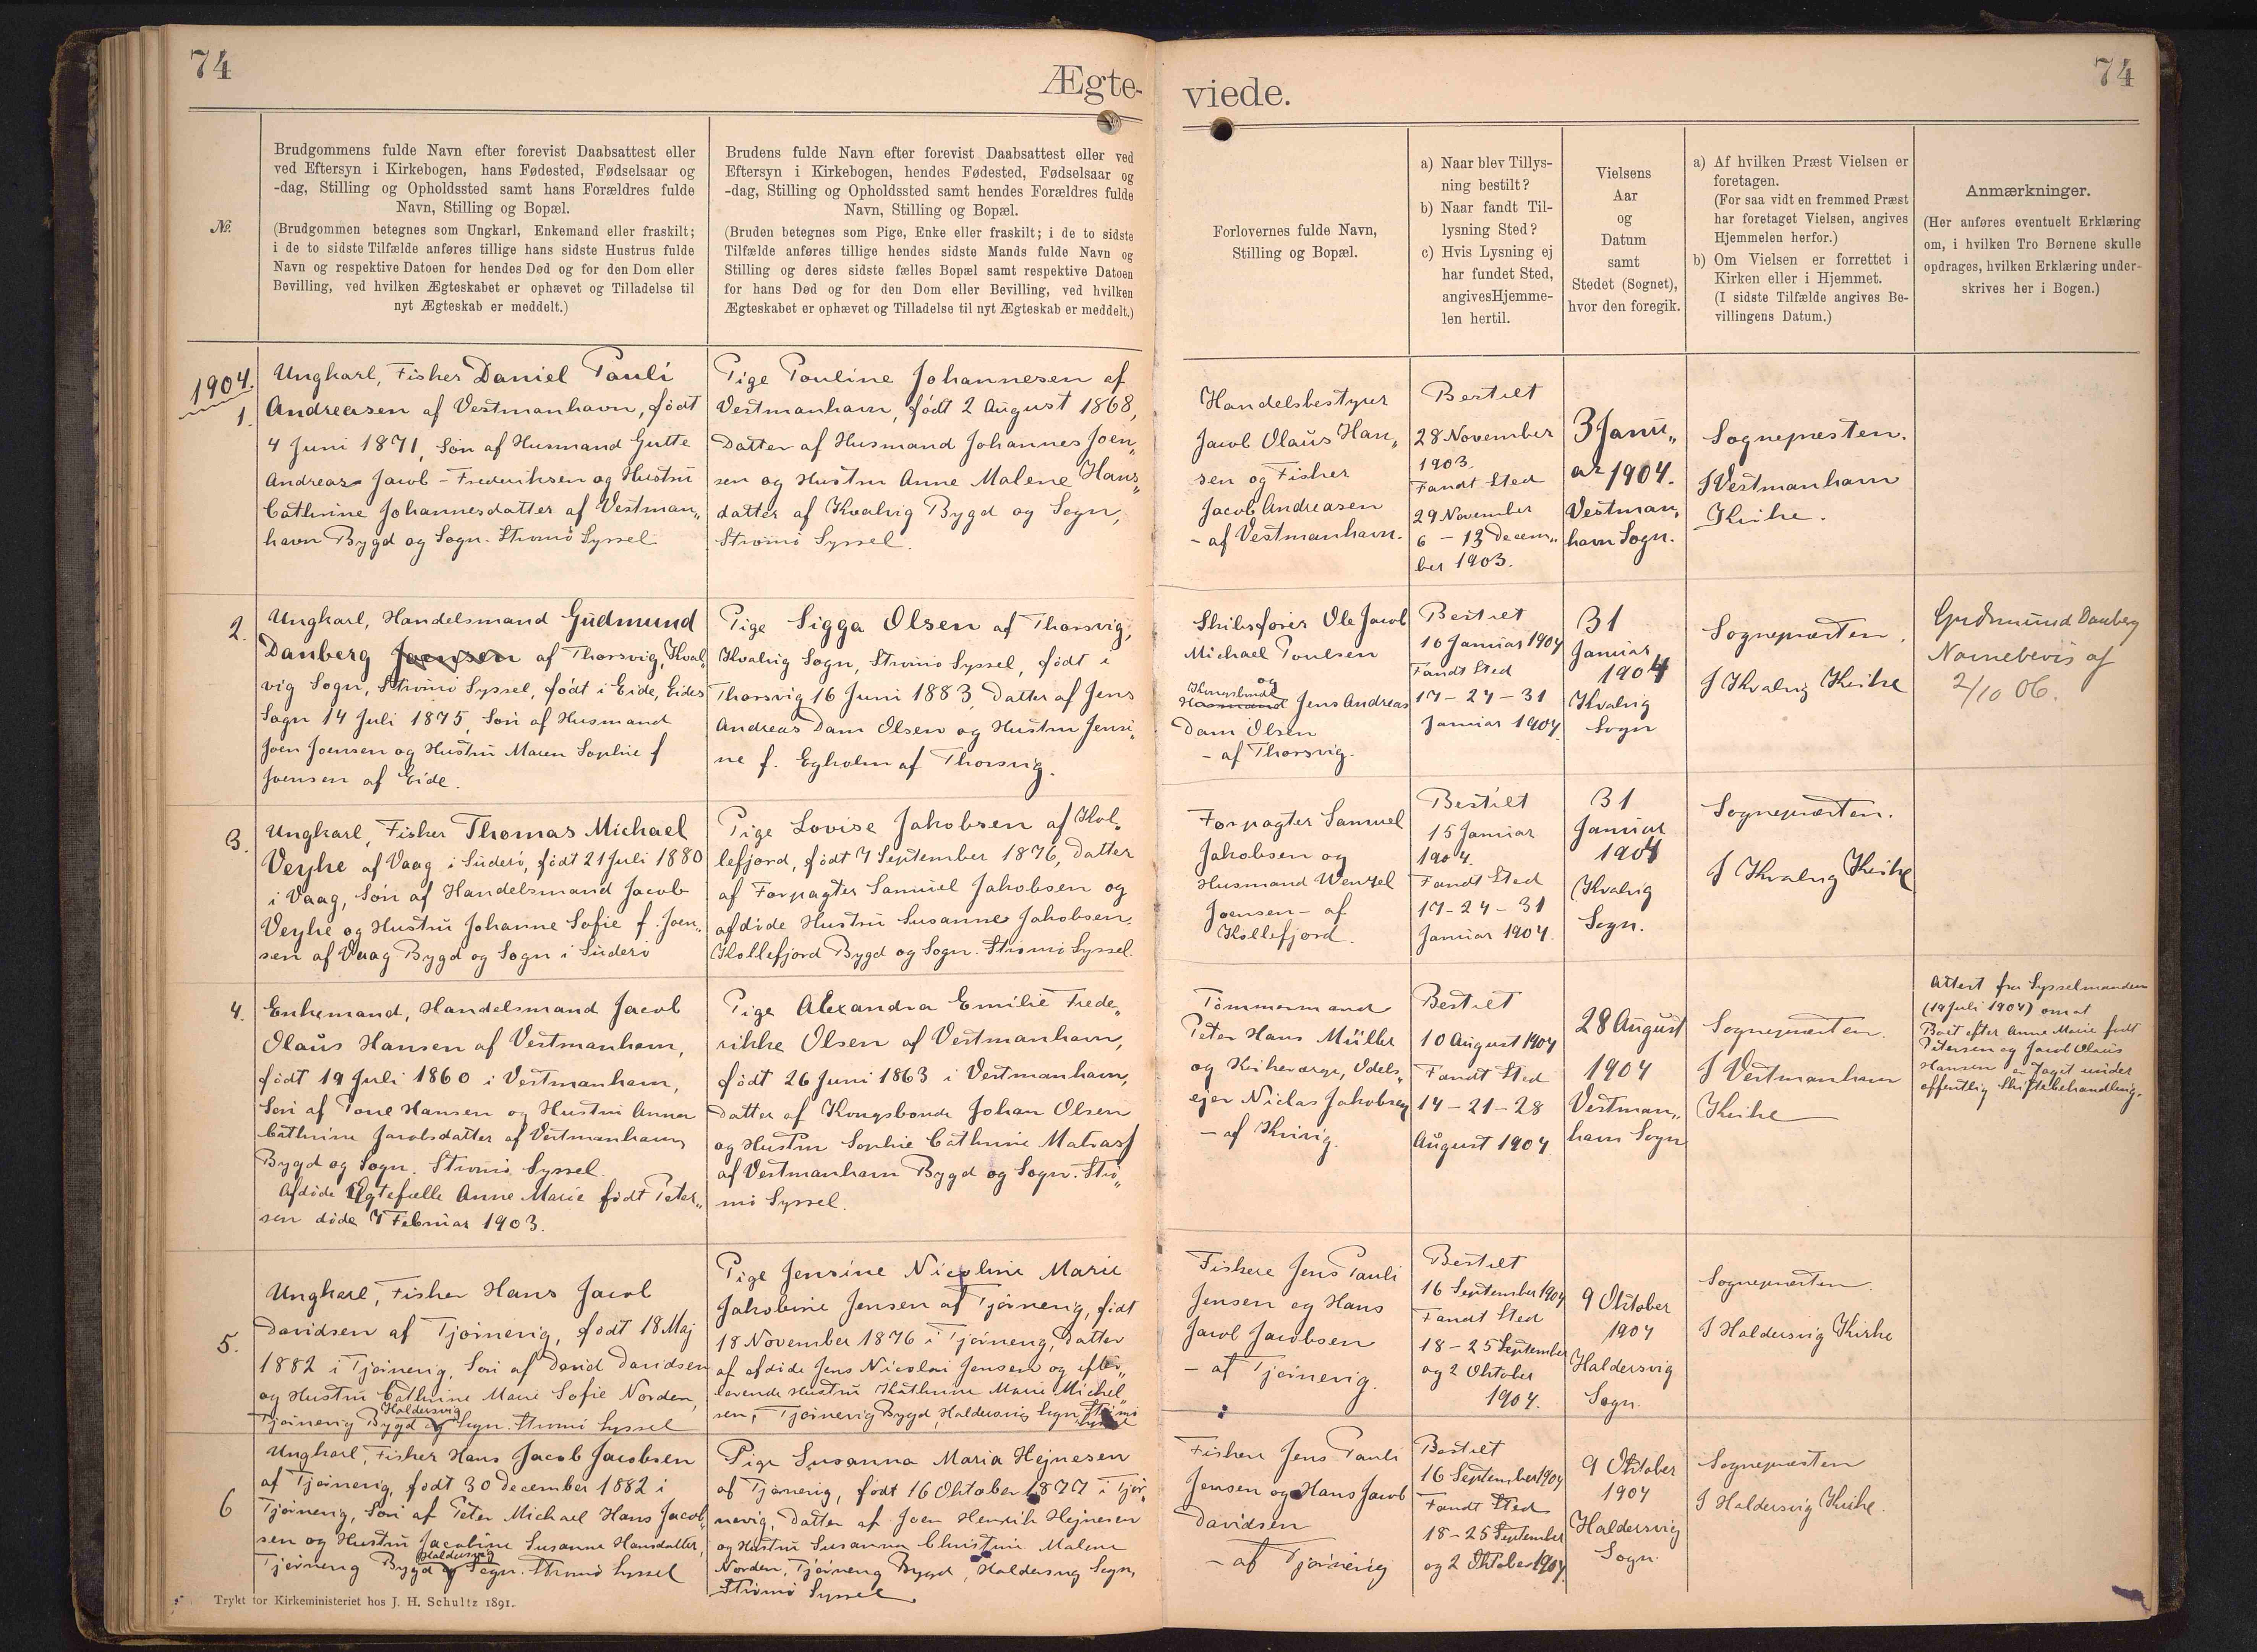 74
Ægte-
Brudgommens fulde Navn efter forevist Daabsattest eller
ved Eftersyn i Kirkebogen, hans Fødested, Fødselsaar og
-dag, Stilling og Opholdssted samt hans Forældres fulde
Navn, Stilling og Bopæl.
(Brudgommen betegnes som Ungkarl, Enkemand eller fraskilt;
i de to sidste Tilfælde anføres tillige hans sidste Hustrus fulde
Navn og respektive Datoen for hendes Død og for den Dom eller
Bevilling, ved hvilken Ægteskabet er ophævet og Tilladelse til
nyt Ægteskab er meddelt.)
№.
Brudens fulde Navn efter forevist Daabsattest eller ved
Eftersyn i Kirkebogen, hendes Fødested, Fødselsaar og
-dag, Stilling og Opholdssted samt hendes Forældres fulde
Navn, Stilling og Bopæl.
(Bruden betegnes som Pige, Enke eller fraskilt; i de to sidste
Tilfælde anføres tillige hendes sidste Mands fulde Navn og
Stilling og deres sidste fælles Bopæl samt respektive Datoen
for hans Død og for den Dom eller Bevilling, ved hvilken
Ægteskabet er ophævet og Tilladelse til nyt Ægteskab er meddelt.)
viede.
74
Forlovernes fulde Navn,
Stilling og Bopæl.
a) Naar blev Tillys-
ning bestilt?
b) Naar fandt Til-
lysning Sted?
c) Hvis Lysning ej
har fundet Sted,
angivesHjemme-
len hertil.
Vielsens
Aar
og
Datum
samt
Stedet (Sognet),
hvor den foregik.
a) Af hvilken Præst Vielsen er
foretagen.
(For saa vidt en fremmed Præst
har foretaget Vielsen, angives
Hjemmelen herfor.)
b) Om Vielsen er forrettet i
Kirken eller i Hjemmet.
(I sidste Tilfælde angives Be-
villingens Datum.)
Anmærkninger.
(Her anføres eventuelt Erklæring
om, i hvilken Tro Børnene skulle
opdrages, hvilken Erklæring under-
skrives her i Bogen.)
1904.
1.
Ungkarl, Fisker Daniel Pauli
Andreasen af Vestmanhavn, født
4 Juni 1871, Søn af Husmand Gutte
Andreas Jacob-Frederiksen og Hustru
Cathrine Johannesdatter af Vestman„
havn Bygd og Sogn. Strømø Syssel
Pige Pouline Johannesen af
Vestmanhavn, født 2 August 1868,
Datter af Husmand Johannes Joen„
sen og Hustru Anne Malene Hans„
datter af Kvalvig Bygd og Sogn,
Strømø Syssel.
Handelsbestyrer
Jacob Olaus Han„
sen og Fisker
Jacob Andreasen
- af Vestmanhavn.
Bestilt
28 November
1903.
Fandt Sted
29 November
6 - 13 Decem„
ber 1903.
3 Janu„
ar 1904.
Vestman„
havn Sogn.
Sognepræsten.
I Vestmanhavn
Kirke.
2.
Ungkarl, Handelsmand Gudmund
Danberg Joensen af Thorsvig, Kval„
vig Sogn, Strømø Syssel, født i Eide, Eides
Sogn 14 Juli 1875, Søn af Husmand
Joen Joensen og Hustru Maren Sophie f
Joensen af Eide.
Pige Sigga Olsen af Thorsvig,
Kvalvig Sogn, Strømø Syssel, født i
Thorsvig 16 Juni 1883, Datter af Jens
Andreas Dam Olsen og Hustru Jensi„
ne f. Egholm af Thorsvig.
Skibsfører Ole Jacob
Michael Poulsen
og
Kongsbonde
Husmand Jens Andreas
Dam Olsen
- af Thorsvig.
Bestilt
10 Januar 1904
Fandt Sted
17 - 24 - 31
Januar 1904.
31
Januar
1904
Kvalvig
Sogn
Sognepræsten.
I Kvalvig Kirke
Gudmund Danberg
Navnebevis af
2/10 06.
3.
Ungkarl, Fisker Thomas Michael
Veyhe af Vaag i Suderø, født 21 Juli 1880
i Vaag, Søn af Handelsmand Jacob
Veyhe og Hustru Johanne Sofie f. Joen„
sen af Vaag Bygd og Sogn i Suderø
Pige Lovise Jakobsen af Kol„
lefjord, født 7 September 1876, Datter
af Forpagter Samuel Jakobsen og
afdøde Hustru Susanne Jakobsen.
Kollefjord Bygd og Sogn. Strømø Syssel.
Forpagter Samuel
Jakobsen og
Husmand Wenzel
Joensen - af
Kollefjord.
Bestilt
15 Januar
1904.
Fandt Sted
17-24-31
Januar 1904.
31
Januar
1904
Kvalvig
Sogn.
Sognepræsten.
I Kvalvig Kirke
4.
Enkemand, Handelsmand Jacob
Olaus Hansen af Vestmanhavn,
født 19 Juli 1860 i Vestmanhavn,
Søn af Tone Hansen og Hustru Anna
Cathrine Jacobsdatter af Vestmanhavn
Bygd og Sogn. Strømø Syssel.
Afdøde Ægtefælle Anne Marie født Peter„
sen døde 7 Februar 1903.
Pige Alexandra Emilie Frede„
rikke Olsen af Vestmanhavn,
født 26 Juni 1863 i Vestmanhavn,
Datter af Kongsbonde Johan Olsen
og Hustru Sophie Cathrine Matras
af Vestmanhavn Bygd og Sogn. Strø„
mø Syssel.
Tømmermand
Peter Hans Müller
og Kirkeværge, Odels„
ejer Niclas Jakobsen
- af Kvivig.
Bestilt
10 August 1904
Fandt Sted
14 - 21 - 28
August 1904.
28 August
1904
Vestman„
havn Sogn
Sognepræsten.
I Vestmanhavn
Kirke
Attest fra Sysselmanden
(19 Juli 1904) om at
Boet efter Anne Marie født
Petersen og Jacob Olaus
Hansen er taget under
offentlig Skiftebehandling.
5.
Ungkarl, Fisker Hans Jacob
Davidsen af Tjørnevig, født 18 Maj
1882 i Tjørnevig, Søn af David Davidsen
og Hustru Cathrine Marie Sofie Norden,
Haldersvig
Tjørnevig Bygd og Sogn. Strømø Syssel
Pige Jensine Nicoline Marie
Jakobine Jensen af Tjørnevig, født
18 November 1876 i Tjørnevig, Datter
af afdøde Jens Nicolai Jensen og efter„
levende Hustru Kathrine Marie Michel„
sen, Tjørnevig Bygd, Haldersvig Sogn, Strømø
Syssel
Fiskere Jens Pauli
Jensen og Hans
Jacob Jacobsen
- af Tjørnevig.
Bestilt
16 September 1904
Fandt Sted
18 - 25 September
og 2 Oktober
1904.
9 Oktober
1904
Haldersvig
Sogn.
Sognepræsten.
I Haldersvig Kirke
6
Ungkarl, Fisker Hans Jacob Jacobsen
af Tjørnevig, født 30 December 1882 i
Tjørnevig, Søn af Peter Michael Hans Jacob„
sen og Hustru Jacobine Susanne Hansdatter,
Haldersvig
Tjørnevig Bygd og Sogn. Strømø Syssel
Pige Susanna Maria Hejnesen
af Tjørnevig, født 16 Oktober 1877 i Tjør„
nevig, Datter af Joen Henrik Hejnesen
og Hustru Susanna Christine Malene
Norden, Tjørnevig Bygd, Haldersvig Sogn,
Strømø Syssel
Fiskere Jens Pauli
Jensen og Hans Jacob
Davidsen
- af Tjørnevig
Bestilt
16 September 1904
Fandt Sted
18-25 September
og 2 Oktober 1904.
9 Oktober
1904
Haldersvig
Sogn.
Sognepræsten
I Haldersvig Kirke.
Trykt for Kirkeministeriet hos J. H. Schultz 1891.